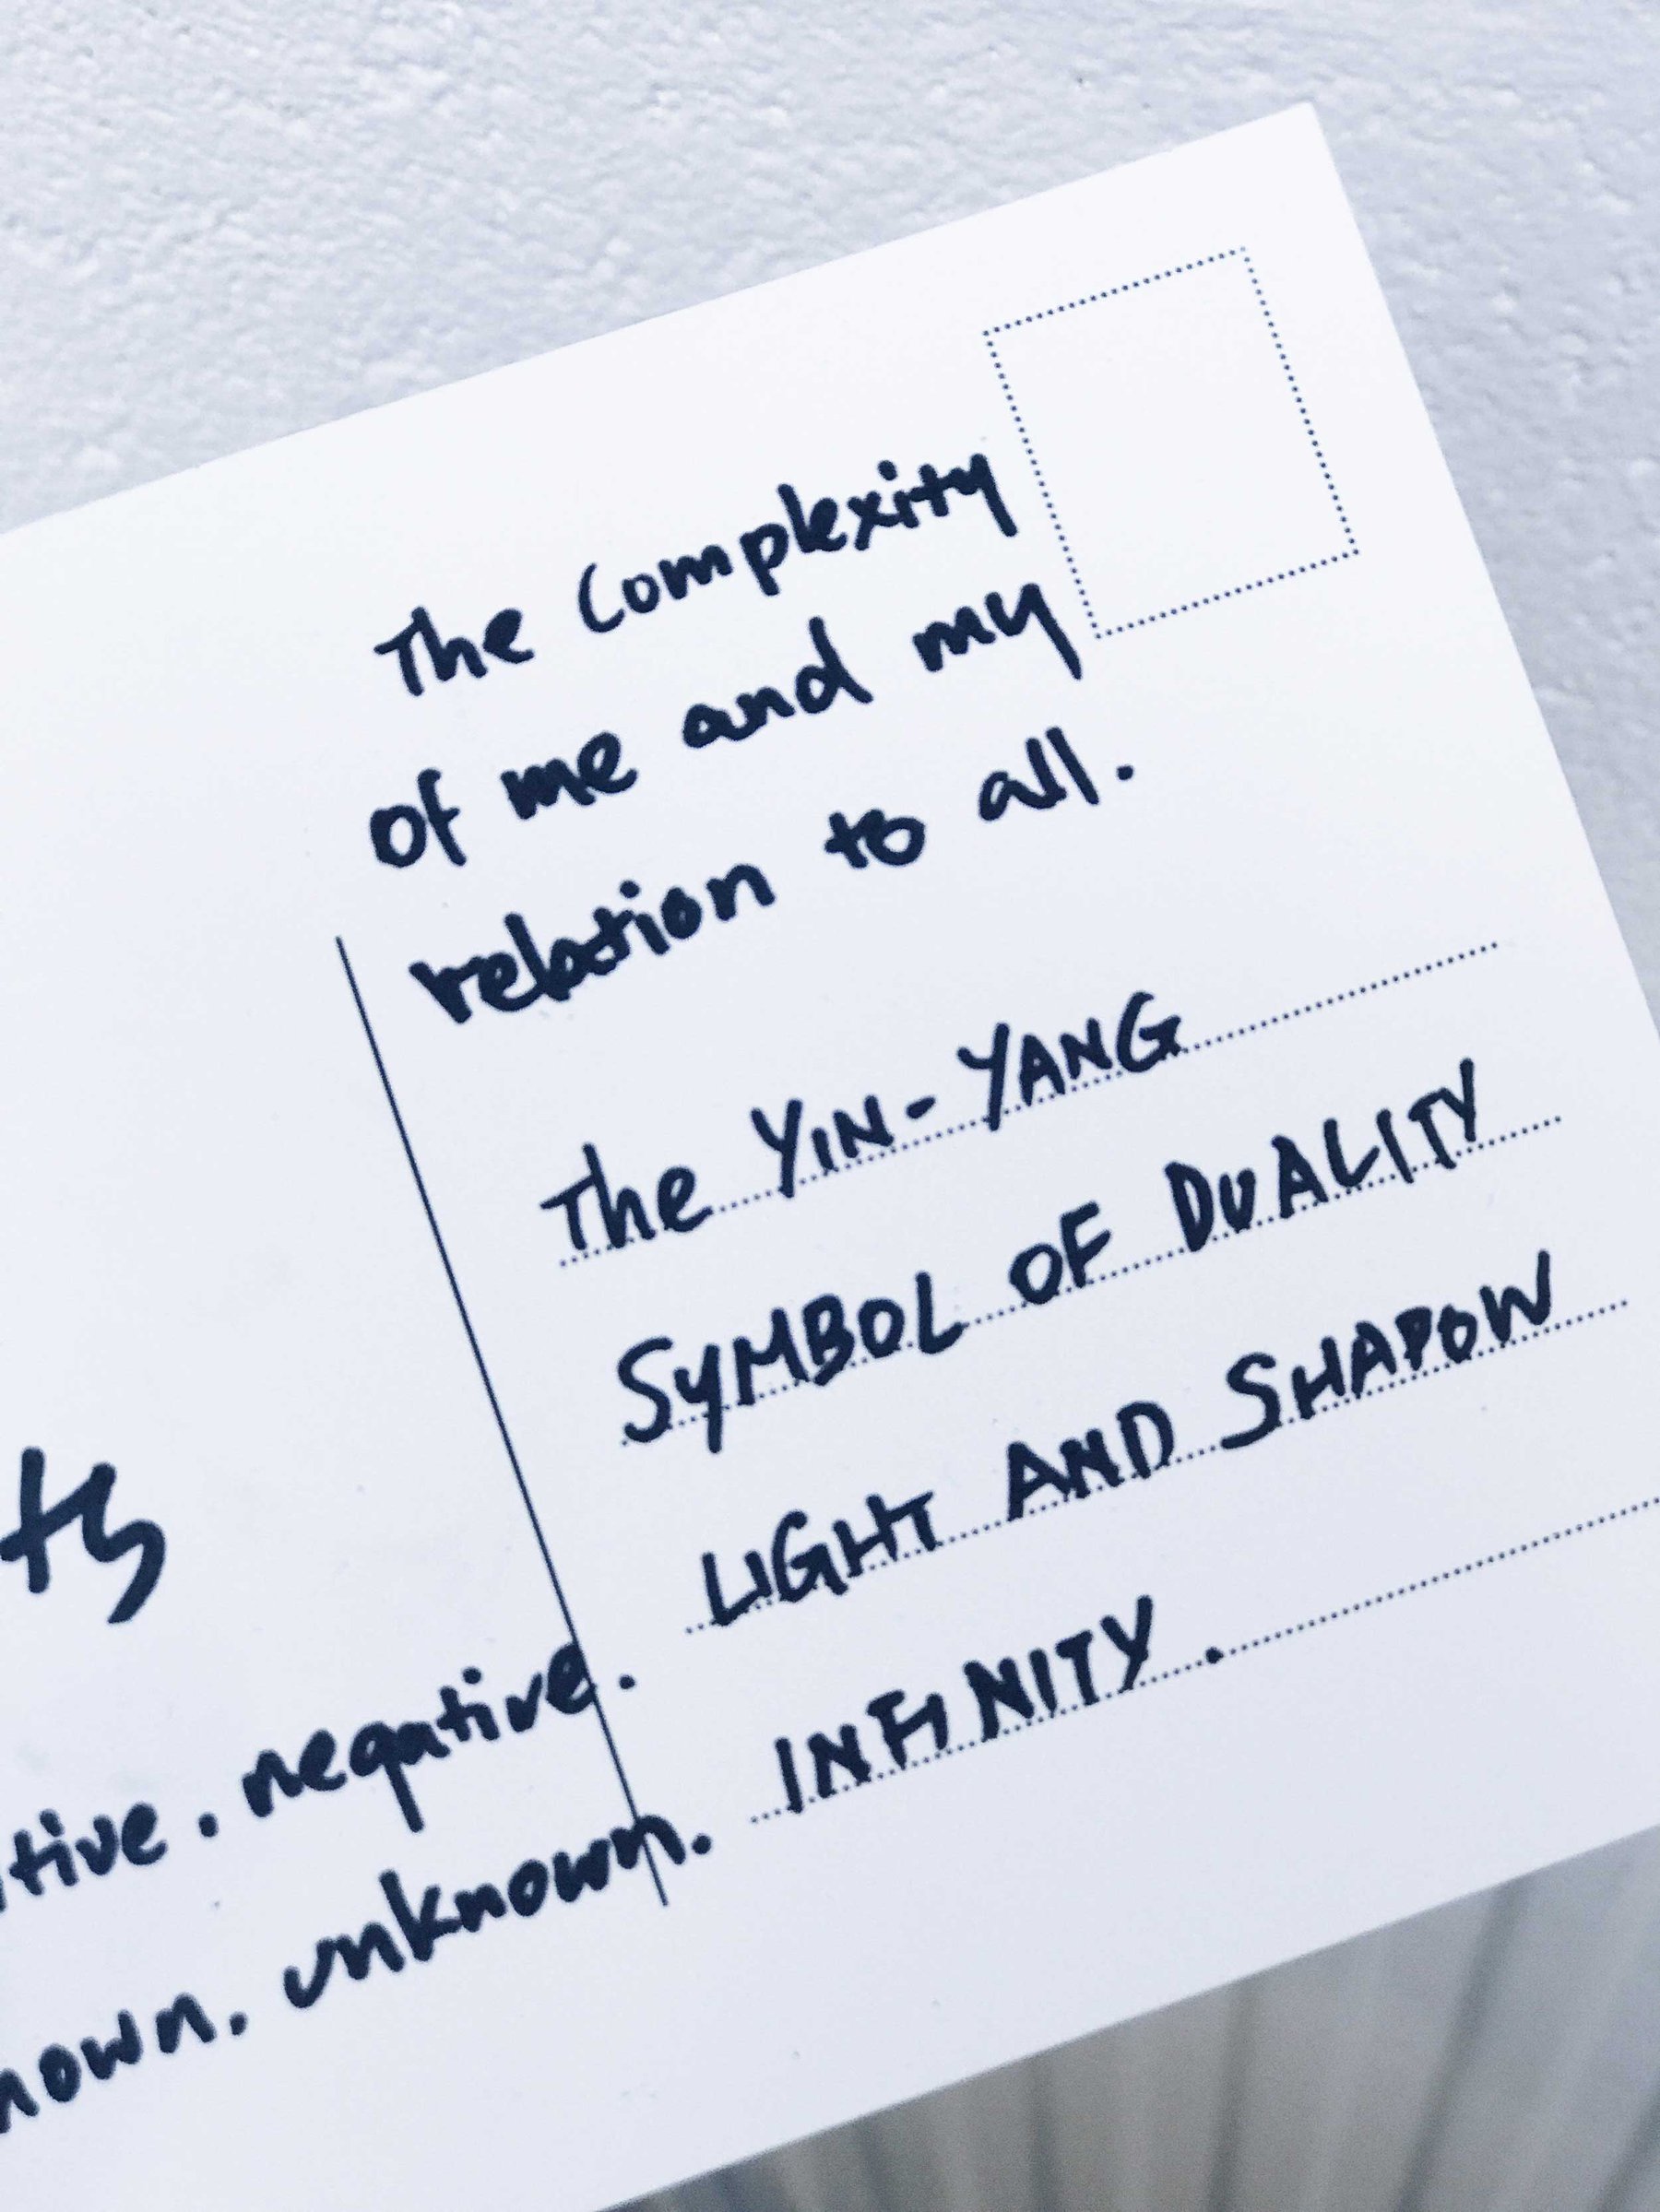 The Complexity
of me and my
relation to all.
The YIN-YANG
SYMBOL OF DUALITY
LIGHT AND SHADOW
INFINITY.
negative.
unknown.